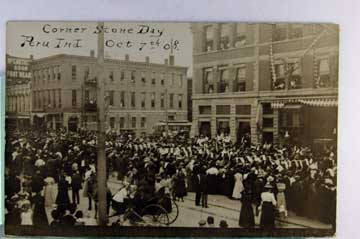 Corner Stone Day
Peru Ind Oct 7th 08.